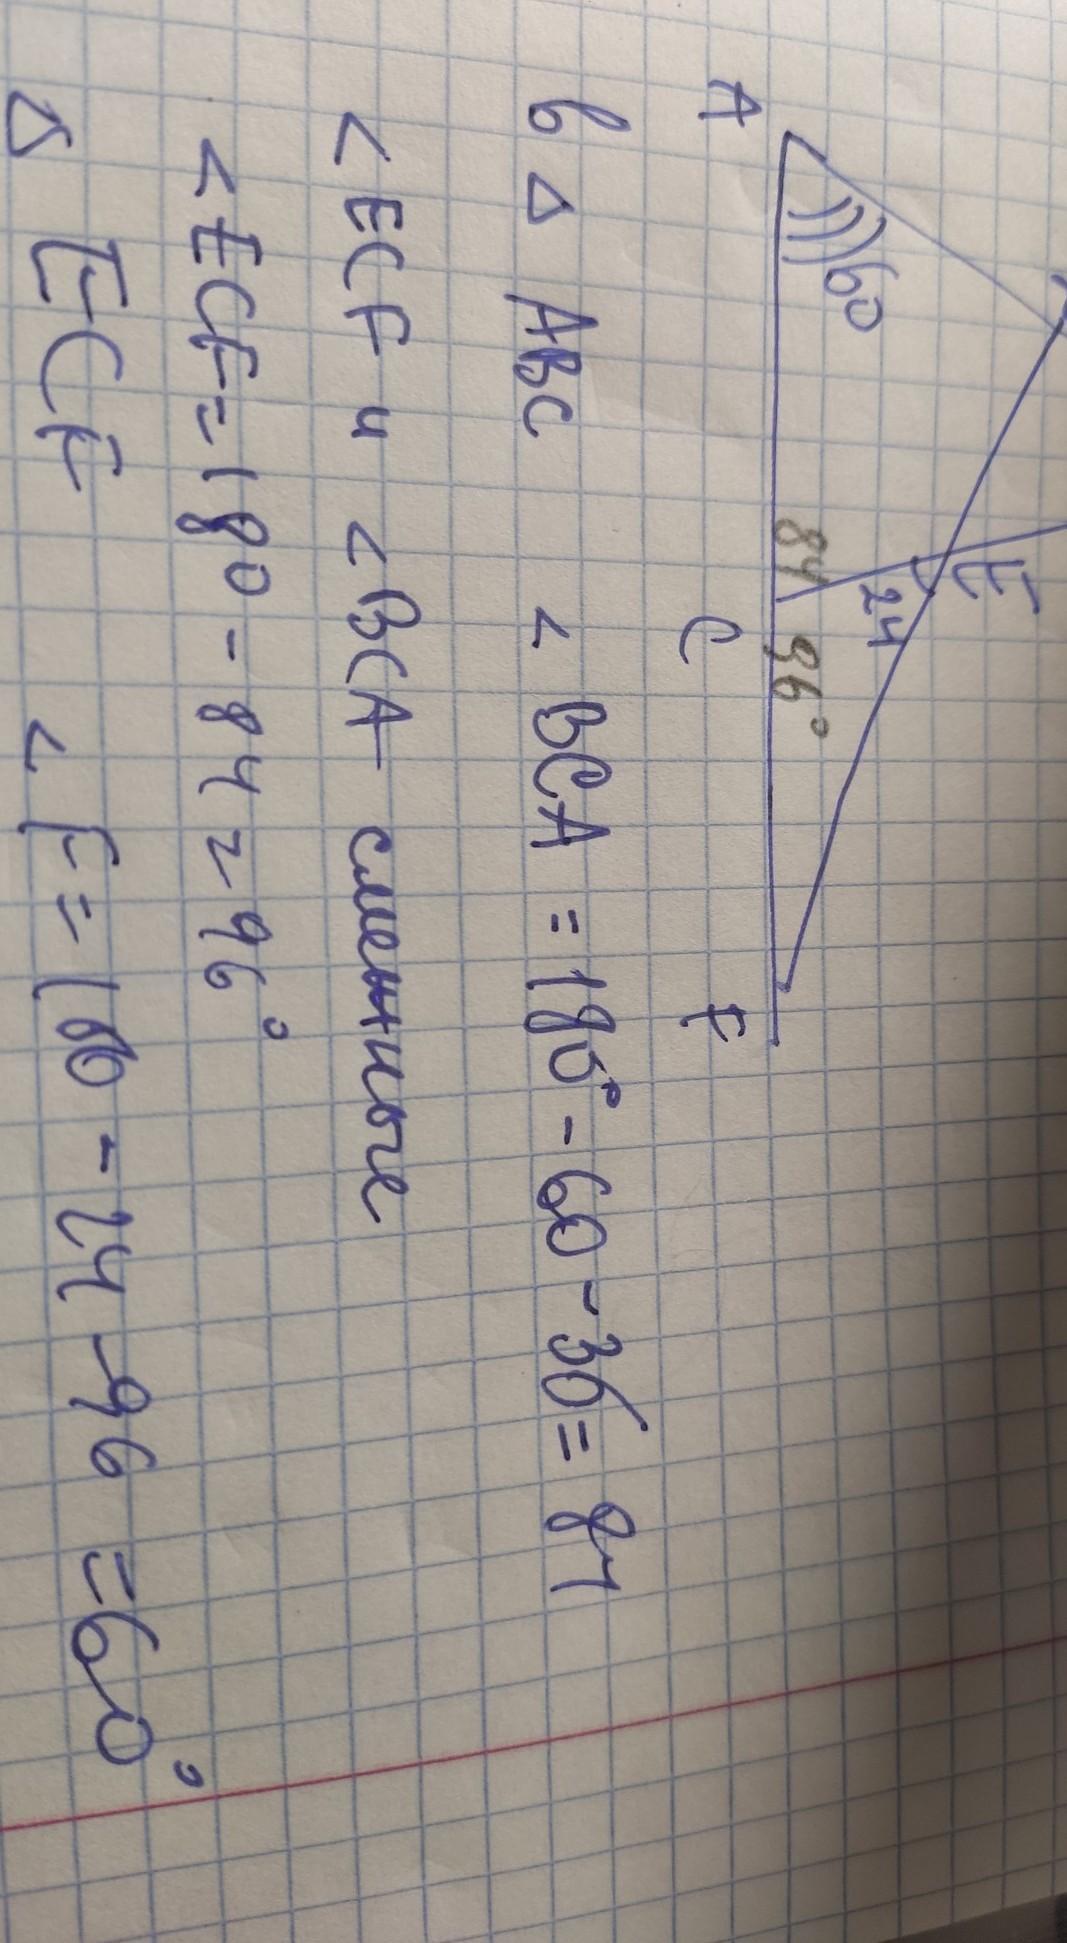 A
60
E
24
84
96°
C
F
в △ ABC < BCA = 180° - 60 - 36 = 84
< ECF и < BCA смежные
< ECF = 180 - 84 = 96°
△ ECF < F = 180 - 24 - 96 = 60°